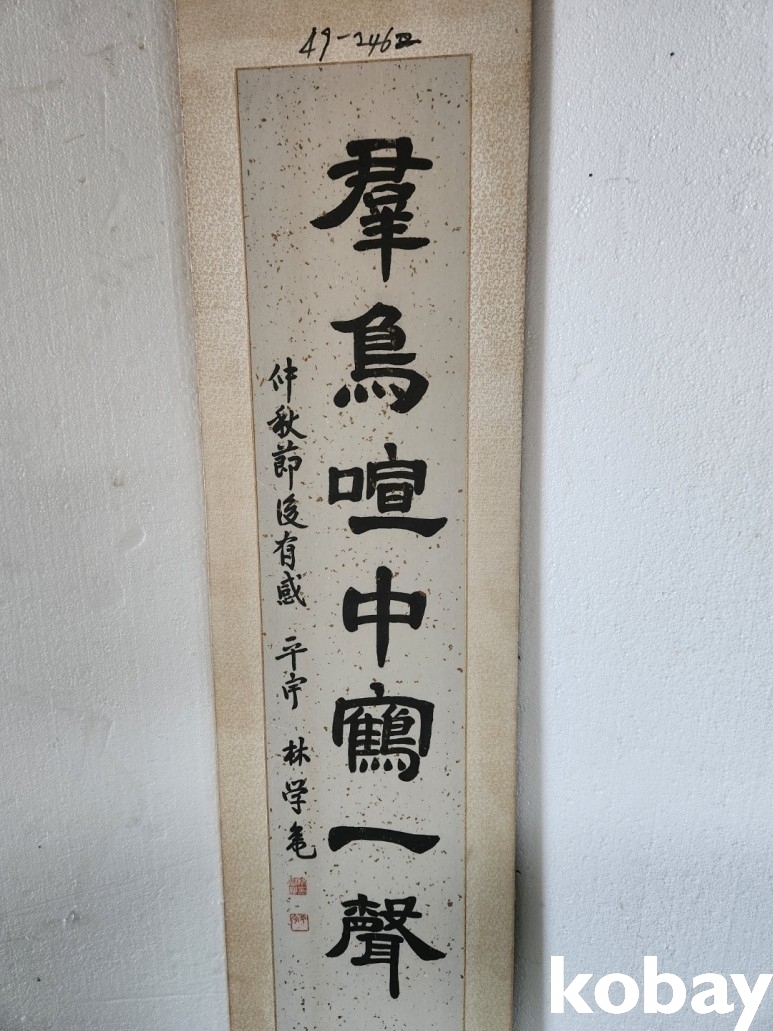 49-246
羣烏喧中鶴一聲
仲秋節後有感 平宇 林学亀
kobay